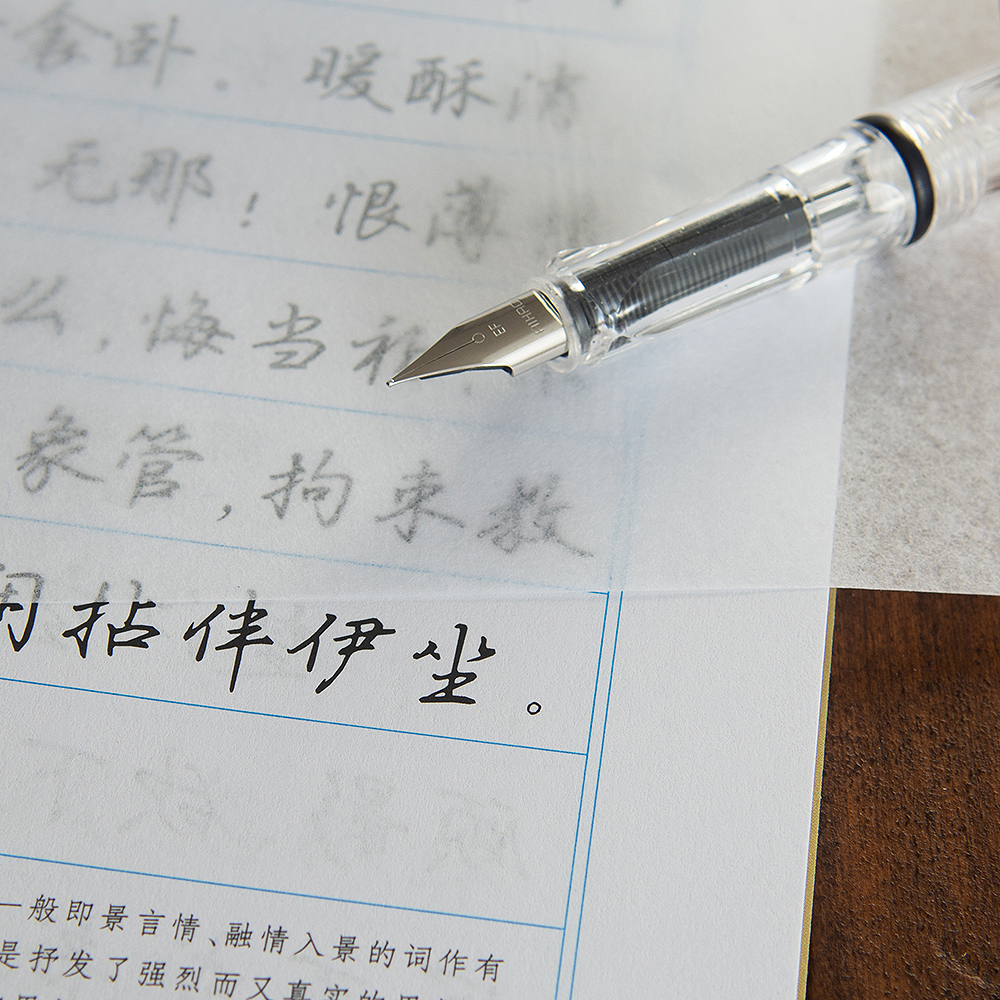 衾卧。暖酥消
无那!恨薄
么,悔当
象管,拘束教
闲拈伴伊坐。
一般即景言情、融情入景的词作有
是抒发了强烈而又真实的
EF